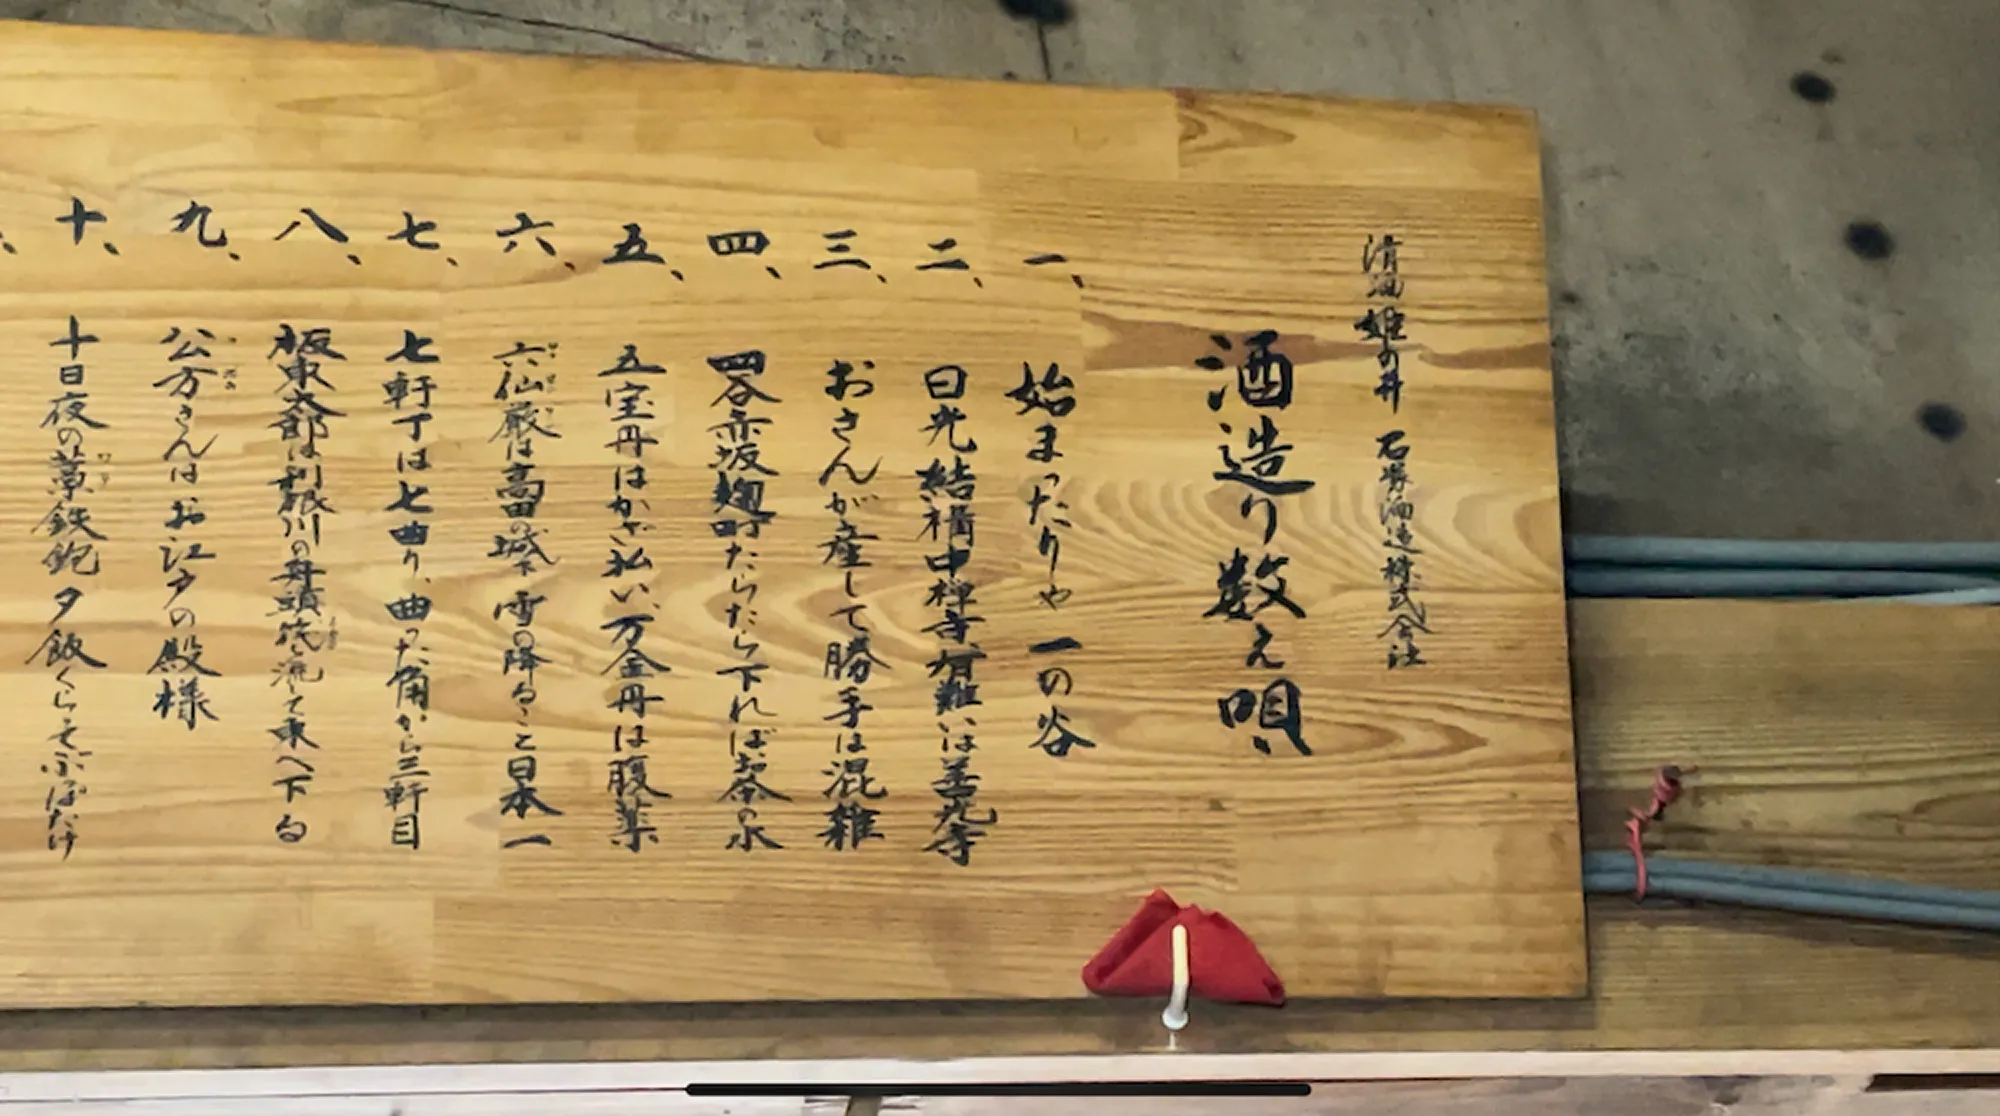 清酒姫の井 石塚酒造株式会社
酒造り数え唄
一、始まったりや一の谷
二、日光結構中禅寺、有難いは善光寺
三、おさんが産して勝手は混雑
四、四谷赤坂麹町たらたら下ればお茶の水
五、五宝丹はかざ払い、万金丹は腹薬
六、六仙厳は高田の城下雪の降ること日本一
七、七軒丁は七曲り、曲った角から三軒目
八、板東太郎は利根川の舟頭 流して東へ下る
九、公方さんはお江戸の殿様
十、十日夜の藁鉄鉋夕飯くらそぶっぱたけ